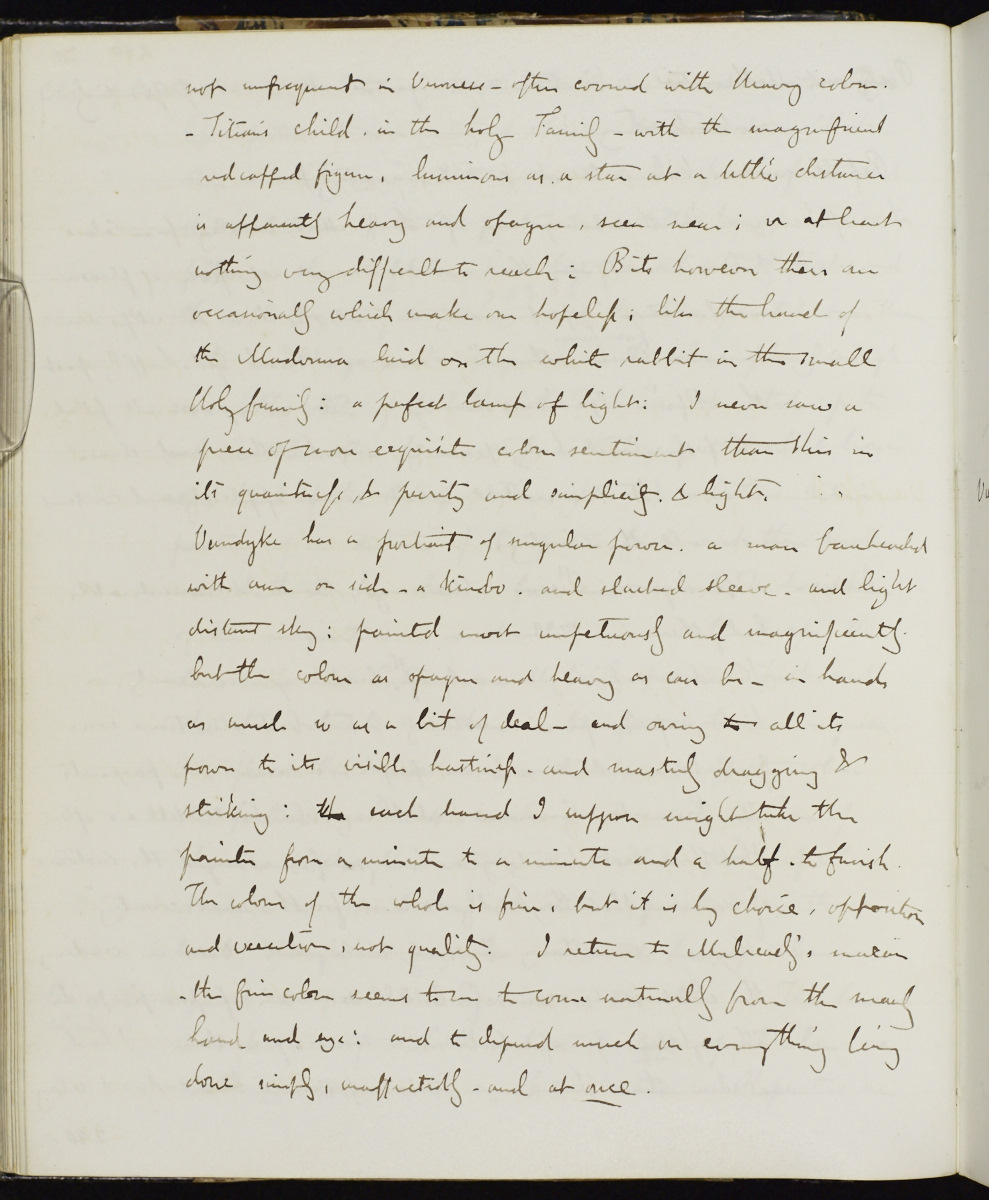 not unfrequent in Veronese - often covered with heavy colour.
- Titians child. in the holy Family - with the magnificent
redcapped figure, luminous as a star at a little distance
is apparently heavy and opaque, seen near; or at least
nothing very difficult to reach: Bits however there are
occasionally which make one hopeless; like the hand of
the Madonna laid on the white rabbit in the small
Holy family: a perfect lamp of light: I never saw a
piece of more exquisite colour sentiment than this in
its quaintness, & purity and simplicity. & light.
Vandyke has a portrait of singular power. a man bareheaded
with arm on side - a kimbo. and slashed sleeve - and light
distant sky: painted most impetuously and magnificently.
but the colour as opaque and heavy as can be - in hands
as much so as a bit of deal - and owing to all its
power to its visible hastiness - and masterly dragging &
striking: the each hand I suppose might take the
painter from a minute to a minute and a half. to finish.
The colour of the whole is fine, but it is by choice, opposition
and execution, not quality. I return to Mulready's maxim
- the fine colour seems to me to come naturally from the ready
hand and eye: and to depend much on everything being
done simply, unaffectedly - and at once.